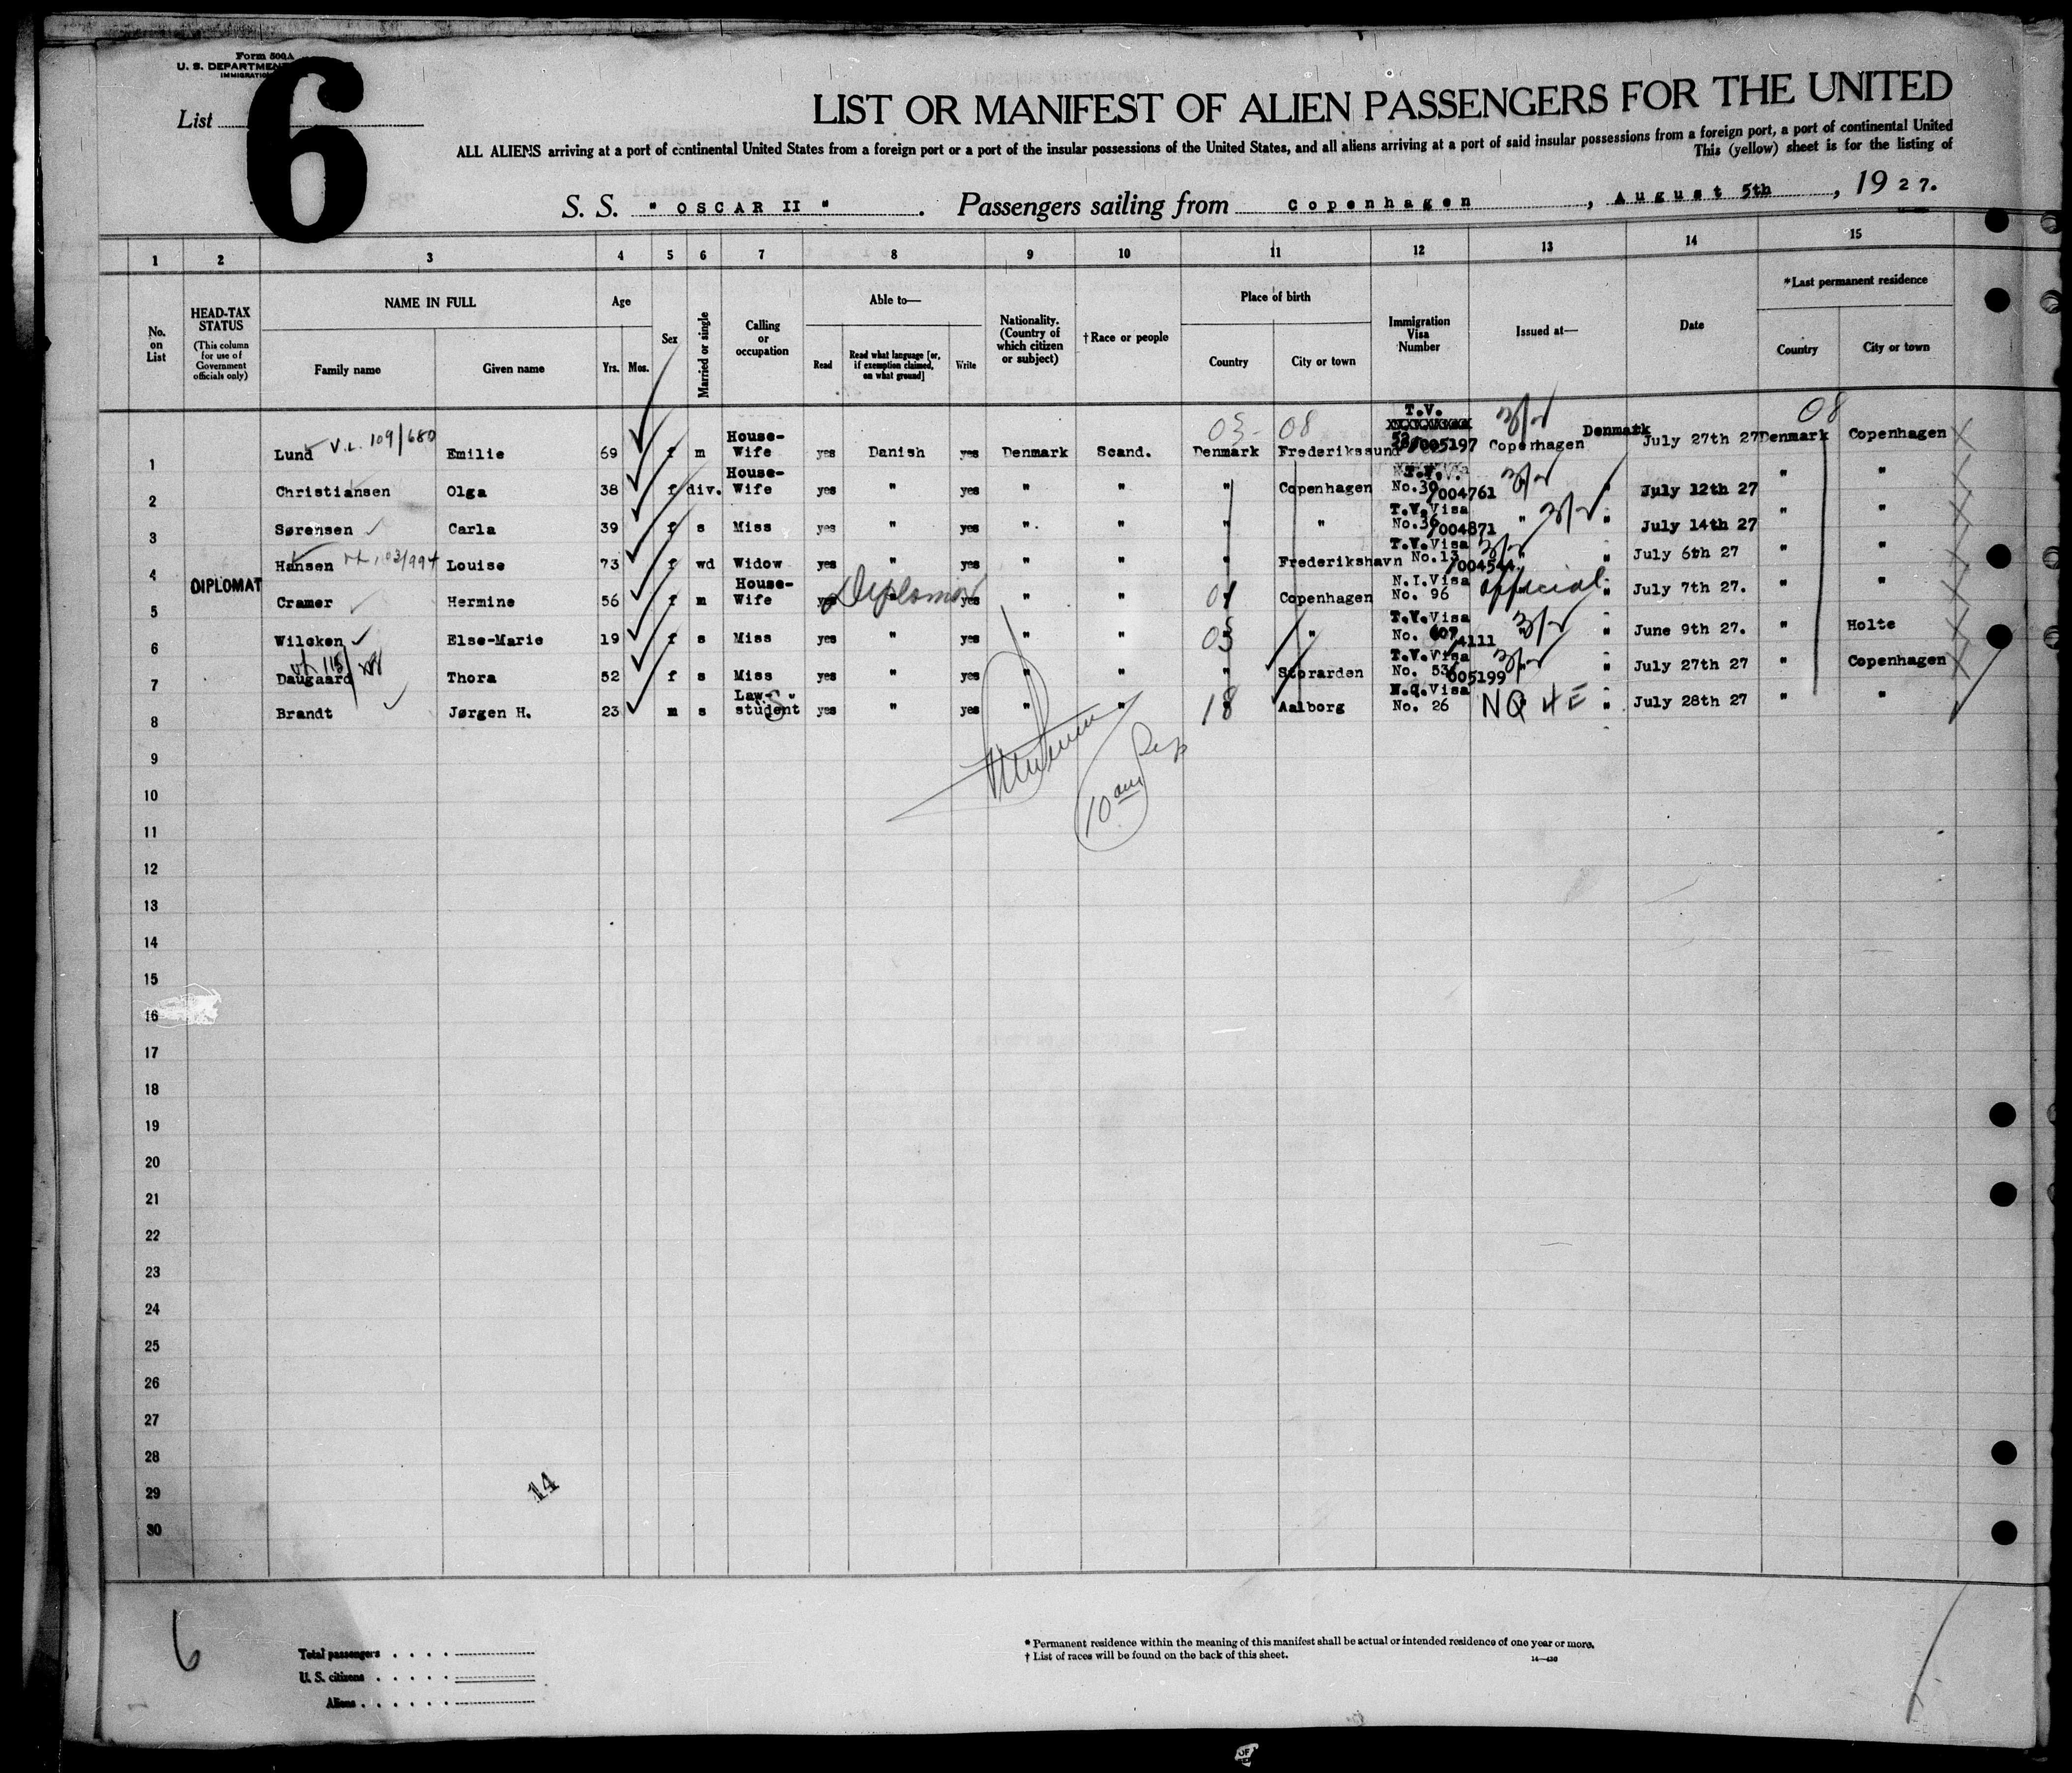 Form 500A
U. S. DEPARTMEN
IMMIGRATIO
List 6
LIST OR MANIFEST OF ALIEN PASSENGERS FOR THE UNITED
ALL ALIENS arriving at a port of continental United States from a foreign port or a port of the insular possessions of the United States, and all aliens arriving at a port of said insular possessions from a foreign port, a port of continental United
This (yellow) sheet is for the listing of
S. S. " OSCAR II " . Passengers sailing from Copenhagen , August 5th , 19 27.
1 2 3 4 5 6 7 8 9 10 11 12 13 14 15
No. on List
HEAD-TAX STATUS
(This column for use of Government officials only)
NAME IN FULL
Family name Given name
Age
Yrs. Mos.
Sex
Married or single
Calling or occupation
Able to—
Read
Read what language [or, if exemption claimed, on what ground]
Write
Nationality. (Country of which citizen or subject)
† Race or people
Place of birth
Country City or town
Immigration Visa Number
Issued at—
Date
*Last permanent residence
Country City or town
03 08 08
1 Lund V.L. 109/680 Emilie 69 f m House-Wife yes Danish yes Denmark Scand. Denmark Frederikssund T.V. /005197 Copenhagen Denmark July 27th 27 Denmark Copenhagen
2 Christiansen Olga 38 f div. House-Wife yes " yes " " " Copenhagen T.V. No.30/004761 " July 12th 27 " "
3 Sørensen Carla 39 f s Miss yes " yes " " " " T.V.Visa No.36/004871 " " July 14th 27 " "
4 Hansen Louise 73 f wd Widow yes " yes " " " Frederikshavn T.V.Visa No.13/004544. " " July 6th 27 " "
DIPLOMAT
5 Cramer Hermine 56 f m House-Wife yes Diplomat yes " " 01 Copenhagen N.I.Visa No. 96 official " July 7th 27. " "
6 Wilcken Else-Marie 19 f s Miss yes " yes " " 03 " T.V.Visa No. 607/4111 " June 9th 27. " Holte
7 Daugaard Thora 52 f s Miss yes " yes " " " Storarden T.V.Visa No. 53/005199 " July 27th 27 " Copenhagen
8 Brandt Jørgen H. 23 m s Law-student yes " yes " " 18 Aalborg N.Q.Visa No. 26 NQ 4E " July 28th 27 " "
9
10
10 am
11
12
13
14
15
16
17
18
19
20
21
22
23
24
25
26
27
28
29
14
30
6
Total passengers
U. S. citizens
Aliens
* Permanent residence within the meaning of this manifest shall be actual or intended residence of one year or more.
† List of races will be found on the back of this sheet.
14—430